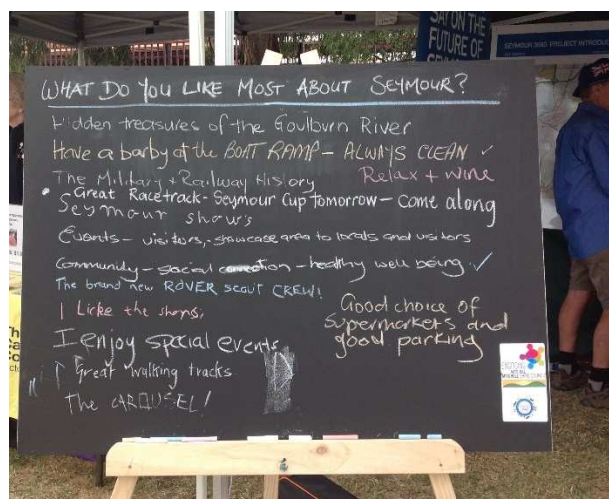 SAY ON THE
FUTURE OF
SEYMOUR 3660: PROJECT INTRODU
WHAT DO YOU LIKE MOST ABOUT SEYMOUR?
Hidden treasures of the Goulburn River
Have a barby at the BOAT RAMP - ALWAYS CLEAN ✓
The Military + Railway History
Relax + wine
• Great Racetrack - Seymour Cup tomorrow - come along
Seymour shows
Events - visitors, - showcase area to locals and visitors
Community - social connection - healthy well being. ✓
The brand new ROVER SCOUT CREW!
I Licke the shops,
Good choice of
supermarkets and
good parking
I enjoy special events
Great walking tracks
The CAROUSEL!